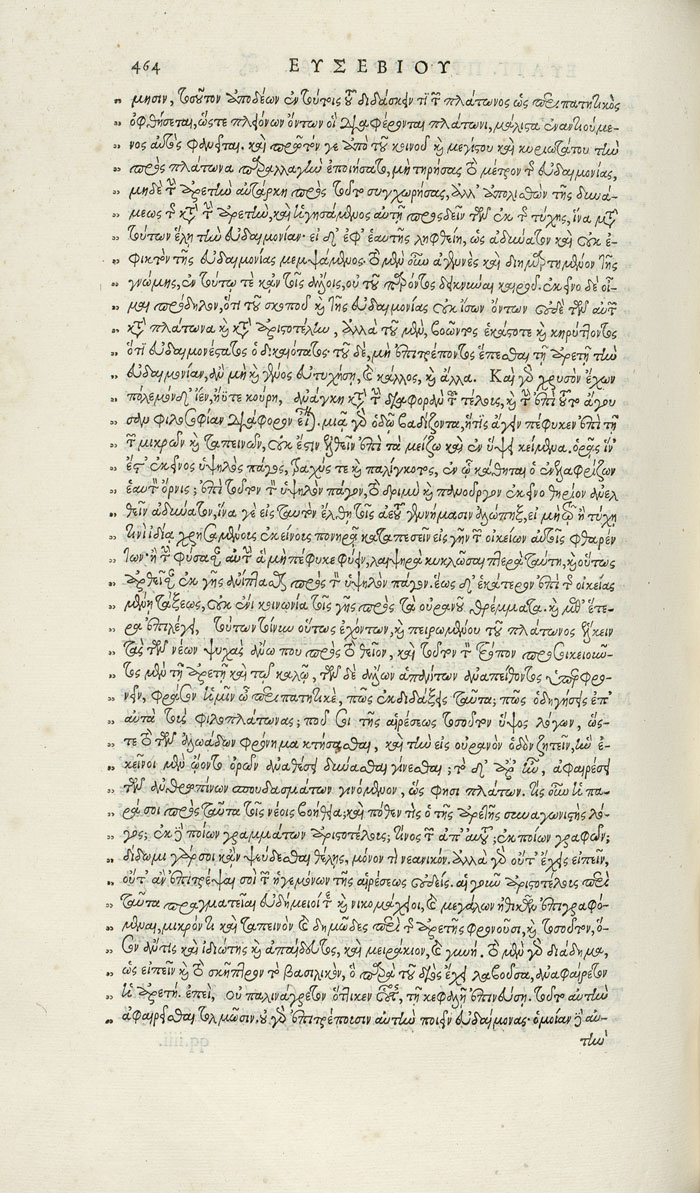 464 ΕΥΣΕΒΙΟΥ
μησιν, τοσοῦτον ἀποδέων ἐν τούτοις τοῦ διδάσκειν τι τῶν πλάτωνος ὡς περιπατητικὸς
ὀφθήσεται, ὥστε πλειόνων ὄντων οἳ διαφέρονται πλάτωνι, μάλιστα ἐναντιούμε-
νος αὐτὸς φανεῖται. καὶ πρῶτόν γε ἀπὸ τοῦ κοινοῦ καὶ μεγίστου καὶ κυριωτάτου τὴν
πρὸς πλάτωνα παραλλαγὴν ἐποιήσατο, μὴ τηρήσας τὸ μέτρον τῆς εὐδαιμονίας,
μηδὲ τὴν ἀρετὴν αὐτάρκη πρὸς τοῦτο συγχωρήσας, ἀλλ' ἀπολισθὼν τῆς δυνά-
μεως τῆς κατὰ τὴν ἀρετὴν, καὶ ἡγησάμενος αὐτῇ προσδεῖν τῶν ἐκ τῆς τύχης, ἵνα μετὰ
τούτων ἕλῃ τὴν εὐδαιμονίαν· εἰ δ' ἐφ' ἑαυτῆς ληφθείη, ὡς ἀδύνατον καὶ οὐκ ἐ-
φικτὸν τῆς εὐδαιμονίας μεμψάμενος. τὸ μὲν οὖν ἀγεννὲς καὶ διημαρτημένον τῆς
γνώμης, ἐν τούτῳ τε κἀν τοῖς ἄλλοις, οὐ τοῦ παρόντος δεικνύναι καιροῦ. ἐκεῖνο δὲ οἶ-
μαι πρόδηλον, ὅτι τοῦ σκοποῦ καὶ τῆς εὐδαιμονίας οὐκ ἴσων ὄντων οὐδὲ τῶν αὐτῶν
κατὰ πλάτωνα καὶ κατὰ ἀριστοτέλην, ἀλλὰ τοῦ μὲν, βοῶντος ἑκάστοτε καὶ κηρύττοντος
ὅτι εὐδαιμονέστατος ὁ δικαιότατος· τοῦ δὲ, μὴ ἐπιτρέποντος ἕπεσθαι τῇ ἀρετῇ τὴν
εὐδαιμονίαν, ἂν μὴ καὶ γένος εὐτυχήσῃ, καὶ κάλλος, καὶ ἄλλα. Καὶ γὰρ χρυσὸν ἔχων
πόλεμον δ' ἴεν, ἠύτε κούρη, ἀνάγκη κατὰ τὴν διαφορὰν τοῦ τέλους, καὶ τὴν ἐπὶ τοῦτο ἄγου
σαν φιλοσοφίαν διάφορον εἶναι. μίαν γὰρ ὁδὸν βαδίζοντα, ἥτις ἄγειν πέφυκεν ἐπί τι
τῶν μικρῶν καὶ ταπεινῶν, οὐκ ἔστιν ἐλθεῖν ἐπὶ τὰ μείζω καὶ ἐν ὕψει κείμενα. ὁρᾷς ἵν'
ἔστ' ἐκεῖνος ὑψηλὸς πάγος, τραχύς τε καὶ παλίγκοτος, ἐν ᾧ κάθηται ὁ ἐνελαφρίζων
ἑαυτὸν ὄρνις; ἐπὶ τοῦτον τὸν ὑψηλὸν πάγον, τὸ δριμὺ καὶ πανοῦργον ἐκεῖνο θηρίον ἀνελ
θεῖν ἀδύνατον, ἵνα γε εἰς ταυτὸν ἔλθῃ τοῖς ἀετοῦ γεννήμασιν ἀλώπηξ, εἰ μὴ ἢ τύχῃ
τινὶ ἰδίᾳ χρησαμένοις ἐκείνοις πονηρᾷ καταπεσεῖν εἰς γῆν τῶν οἰκείων αὐτοῖς φθαρέν
των· ἢ τὸ φύσασα αὐτῇ ἃ μὴ πέφυκε φύειν, λαιψηρὰ κυκλῶσαι πτερὰ ταύτῃ, καὶ οὕτως
ἀρθεῖσα ἐκ γῆς ἀνίπτασθαι πρὸς τὸν ὑψηλὸν πάγον. ἕως δ' ἑκάτερον ἐπὶ τῆς οἰκείας
μένῃ τάξεως, οὐκ ἔνι κοινωνία τοῖς γῆς πρὸς τὰ οὐρανοῦ θρέμματα. καὶ μεθ' ἕτε-
ρα ἐπιλέγει, τούτων τοίνυν οὕτως ἐχόντων, καὶ πειρωμένου τοῦ πλάτωνος ἕλκειν
τὰς τῶν νέων ψυχὰς ἄνω που πρὸς τὸ θεῖον, καὶ τοῦτον τὸν τρόπον προσοικειοῦν-
τος μὲν τῇ ἀρετῇ καὶ τῷ καλῷ, τῶν δὲ ἄλλων ἁπάντων ἀναπείθοντος ὑπερφρο-
νεῖν, φράσον ἡμῖν ὦ περιπατητικὲ, πῶς ἐκδιδάξεις ταῦτα; πῶς ὁδηγήσεις ἐπ'
αὐτὰ τοὺς φιλοπλάτωνας; ποῦ σοι τῆς αἱρέσεως τοσοῦτον ὕψος λόγων, ὥς-
τε τὸ τῶν ἀλωάδων φρόνημα κτήσασθαι, καὶ τὴν εἰς οὐρανὸν ὁδὸν ζητεῖν, ἣν ἐ-
κεῖνοι μὲν ᾤοντο ὀρῶν ἀναθέσει δύνασθαι γίνεσθαι; τὸ δ' ἄρ' ἦν, ἀφαιρέσει
τῶν ἀνθρωπίνων σπουδασμάτων γινόμενον, ὥς φησι πλάτων. τίς οὖν ἡ πα-
ρά σοι πρὸς ταῦτα τοῖς νέοις βοήθεια; καὶ πόθεν τίς ὁ τῆς ἀρετῆς συναγωνιστὴς λό-
γος; ἐκ ποίων γραμμάτων ἀριστοτέλους; τίνος τῶν ἀπ' αὐτοῦ; ἐκ ποίων γραφῶν;
δίδωμι γάρ σοι κἂν ψεύδεσθαι θέλῃς, μόνον τι νεανικόν. ἀλλὰ γὰρ οὔτ' ἔχεις εἰπεῖν,
οὔτ' ἂν ἐπιτρέψαι σοι τῶν ἡγεμόνων τῆς αἱρέσεως οὐδείς. αἱ γοῦν ἀριστοτέλους περὶ
ταῦτα πραγματεῖαι εὐδήμειοί τε καὶ νικομάχειοι, καὶ μεγάλων ἠθικῶν ἐπιγραφό-
μεναι, μικρόν τι καὶ ταπεινὸν καὶ δημῶδες περὶ τῆς ἀρετῆς φρονοῦσι, καὶ τοσοῦτον, ὅ-
σον ἄν τις καὶ ἰδιώτης καὶ ἀπαίδευτος, καὶ μειράκιον, καὶ γυνή. τὸ μὲν γὰρ διάδημα,
ὡς εἰπεῖν καὶ τὸ σκῆπτρον τὸ βασιλικὸν, ὃ παρὰ τοῦ διὸς ἔχει λαβοῦσα, ἀναφαίρετον
ἡ ἀρετή. ἐπεὶ, οὐ παλινάγρετον ὅττι κεν, τῇ κεφαλῇ ἐπινεύσῃ. τοῦτο αὐτὴν
ἀφαιρεῖσθαι τολμῶσιν. οὐ γὰρ ἐπιτρέπουσιν αὐτὴν ποιεῖν εὐδαίμονας· ὁμοίαν αὐ-
τὴν